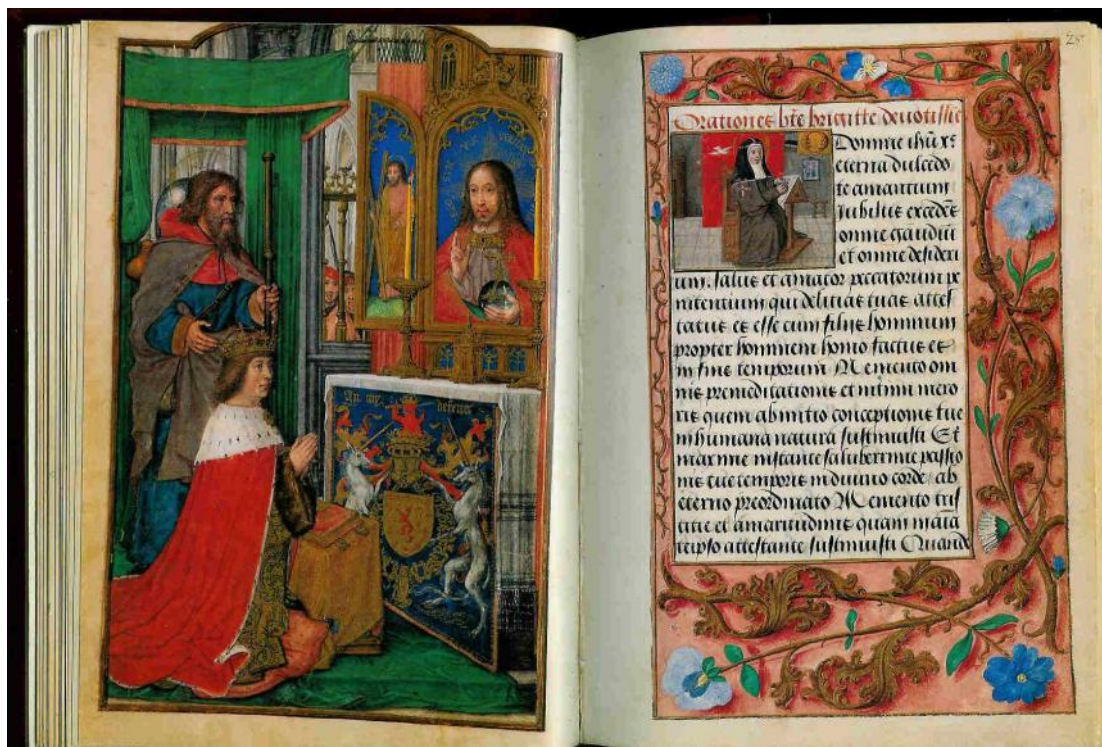 In my defens
25
Orationes bte brigitte devotissie
Domine ihu xp̄e
eterna dulcedo
te amantium
Iubilus excedēs
omne gaudiū
et omne desideri
um. salus et amator peccatorum pe
nitentium qui delitias tuas attes
tatus es esse cum filijs hominum
propter hominem homo factus es
in fine temporum Memento om
nis premeditationis et intimi mero
ris quem ab initio conceptionis tue
in humana natura sustinuisti Et
maxime instante saluberrime passio
nis tue tempore in divino corde, ab
eterno preordinato Memento tris
titie et amaritudinis quam in aīa
teipso attestante sustinuisti Quando